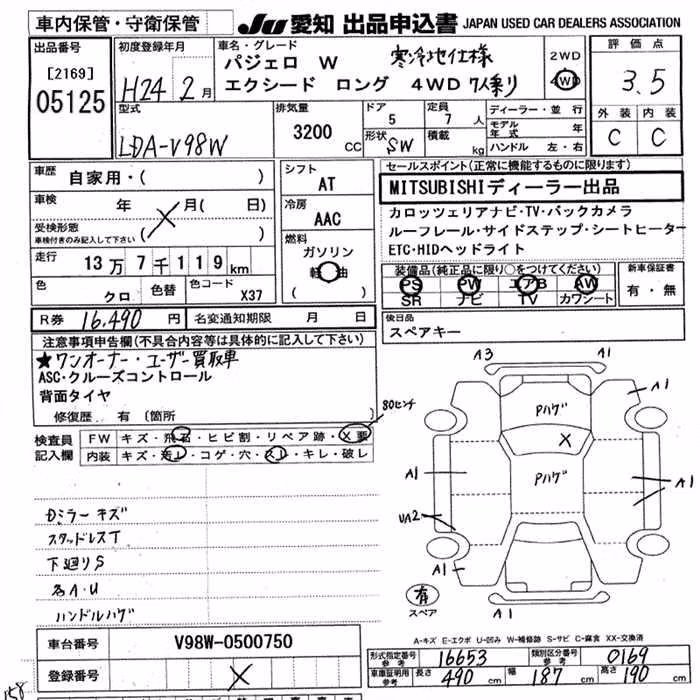 車内保管・守衛保管
JU 愛知 出品申込書 JAPAN USED CAR DEALERS ASSOCIATION
出品番号
[2169]
05125
初度登録年月
H24 2月
車名・グレード
パジェロ W 寒冷地仕様
エクシード ロング 4WD 7人乗り
2WD
4WD
評価点
3.5
外装 内装
C C
型式
LDA-V98W
排気量
3200 CC
ドア
5
定員
7 人
形状
SW
積載
kg
ディーラー・並行
モデル年式 年
ハンドル 左・右
車歴
自家用・( )
車検
年 月(日)
受検形態
車検付きのみ記入して下さい ( )
走行
13万7千119km
色
クロ
色替
色コード
X37
シフト
AT
冷房
AAC
燃料
ガソリン
軽油
( )
セールスポイント(正常に機能するものに限ります)
MITSUBISHIディーラー出品
カロッツェリアナビ・TV・バックカメラ
ルーフレール・サイドステップ・シートヒーター
ETC・HIDヘッドライト
装備品(純正品に限り○をつけてください)
PS PW エアB AW
SR ナビ TV カワシート
新車保証書
有・無
R券 16,490 円
名変通知期限 月 日
後日品
スペアキー
注意事項申告欄(不具合内容等は具体的に記入して下さい)
★ワンオーナー・ユーザー買取車
ASC・クルーズコントロール
背面タイヤ
修復歴 有 [箇所 ]
検査員
記入欄
FW キズ・飛石・ヒビ割・リペア跡・X要
80センチ
内装 キズ・汚レ・コゲ・穴・スレ・キレ・破レ
Dミラーキズ
スタッドレスT
下廻りS
各A・U
ハンドルハゲ
A3
A1
A1
Pハゲ
X
Pハゲ
A1
A1
UA2
A1
A1
有
スペア
A-キズ E-エクボ U-凹み W-補修跡 S-サビ C-腐食 XX-交換済
車台番号
V98W-0500750
登録番号
形式指定番号
参考
16653
類別区分番号
参考
0169
車車証明用
参考
長さ 490 cm
幅 187 cm
高さ 190 cm
158